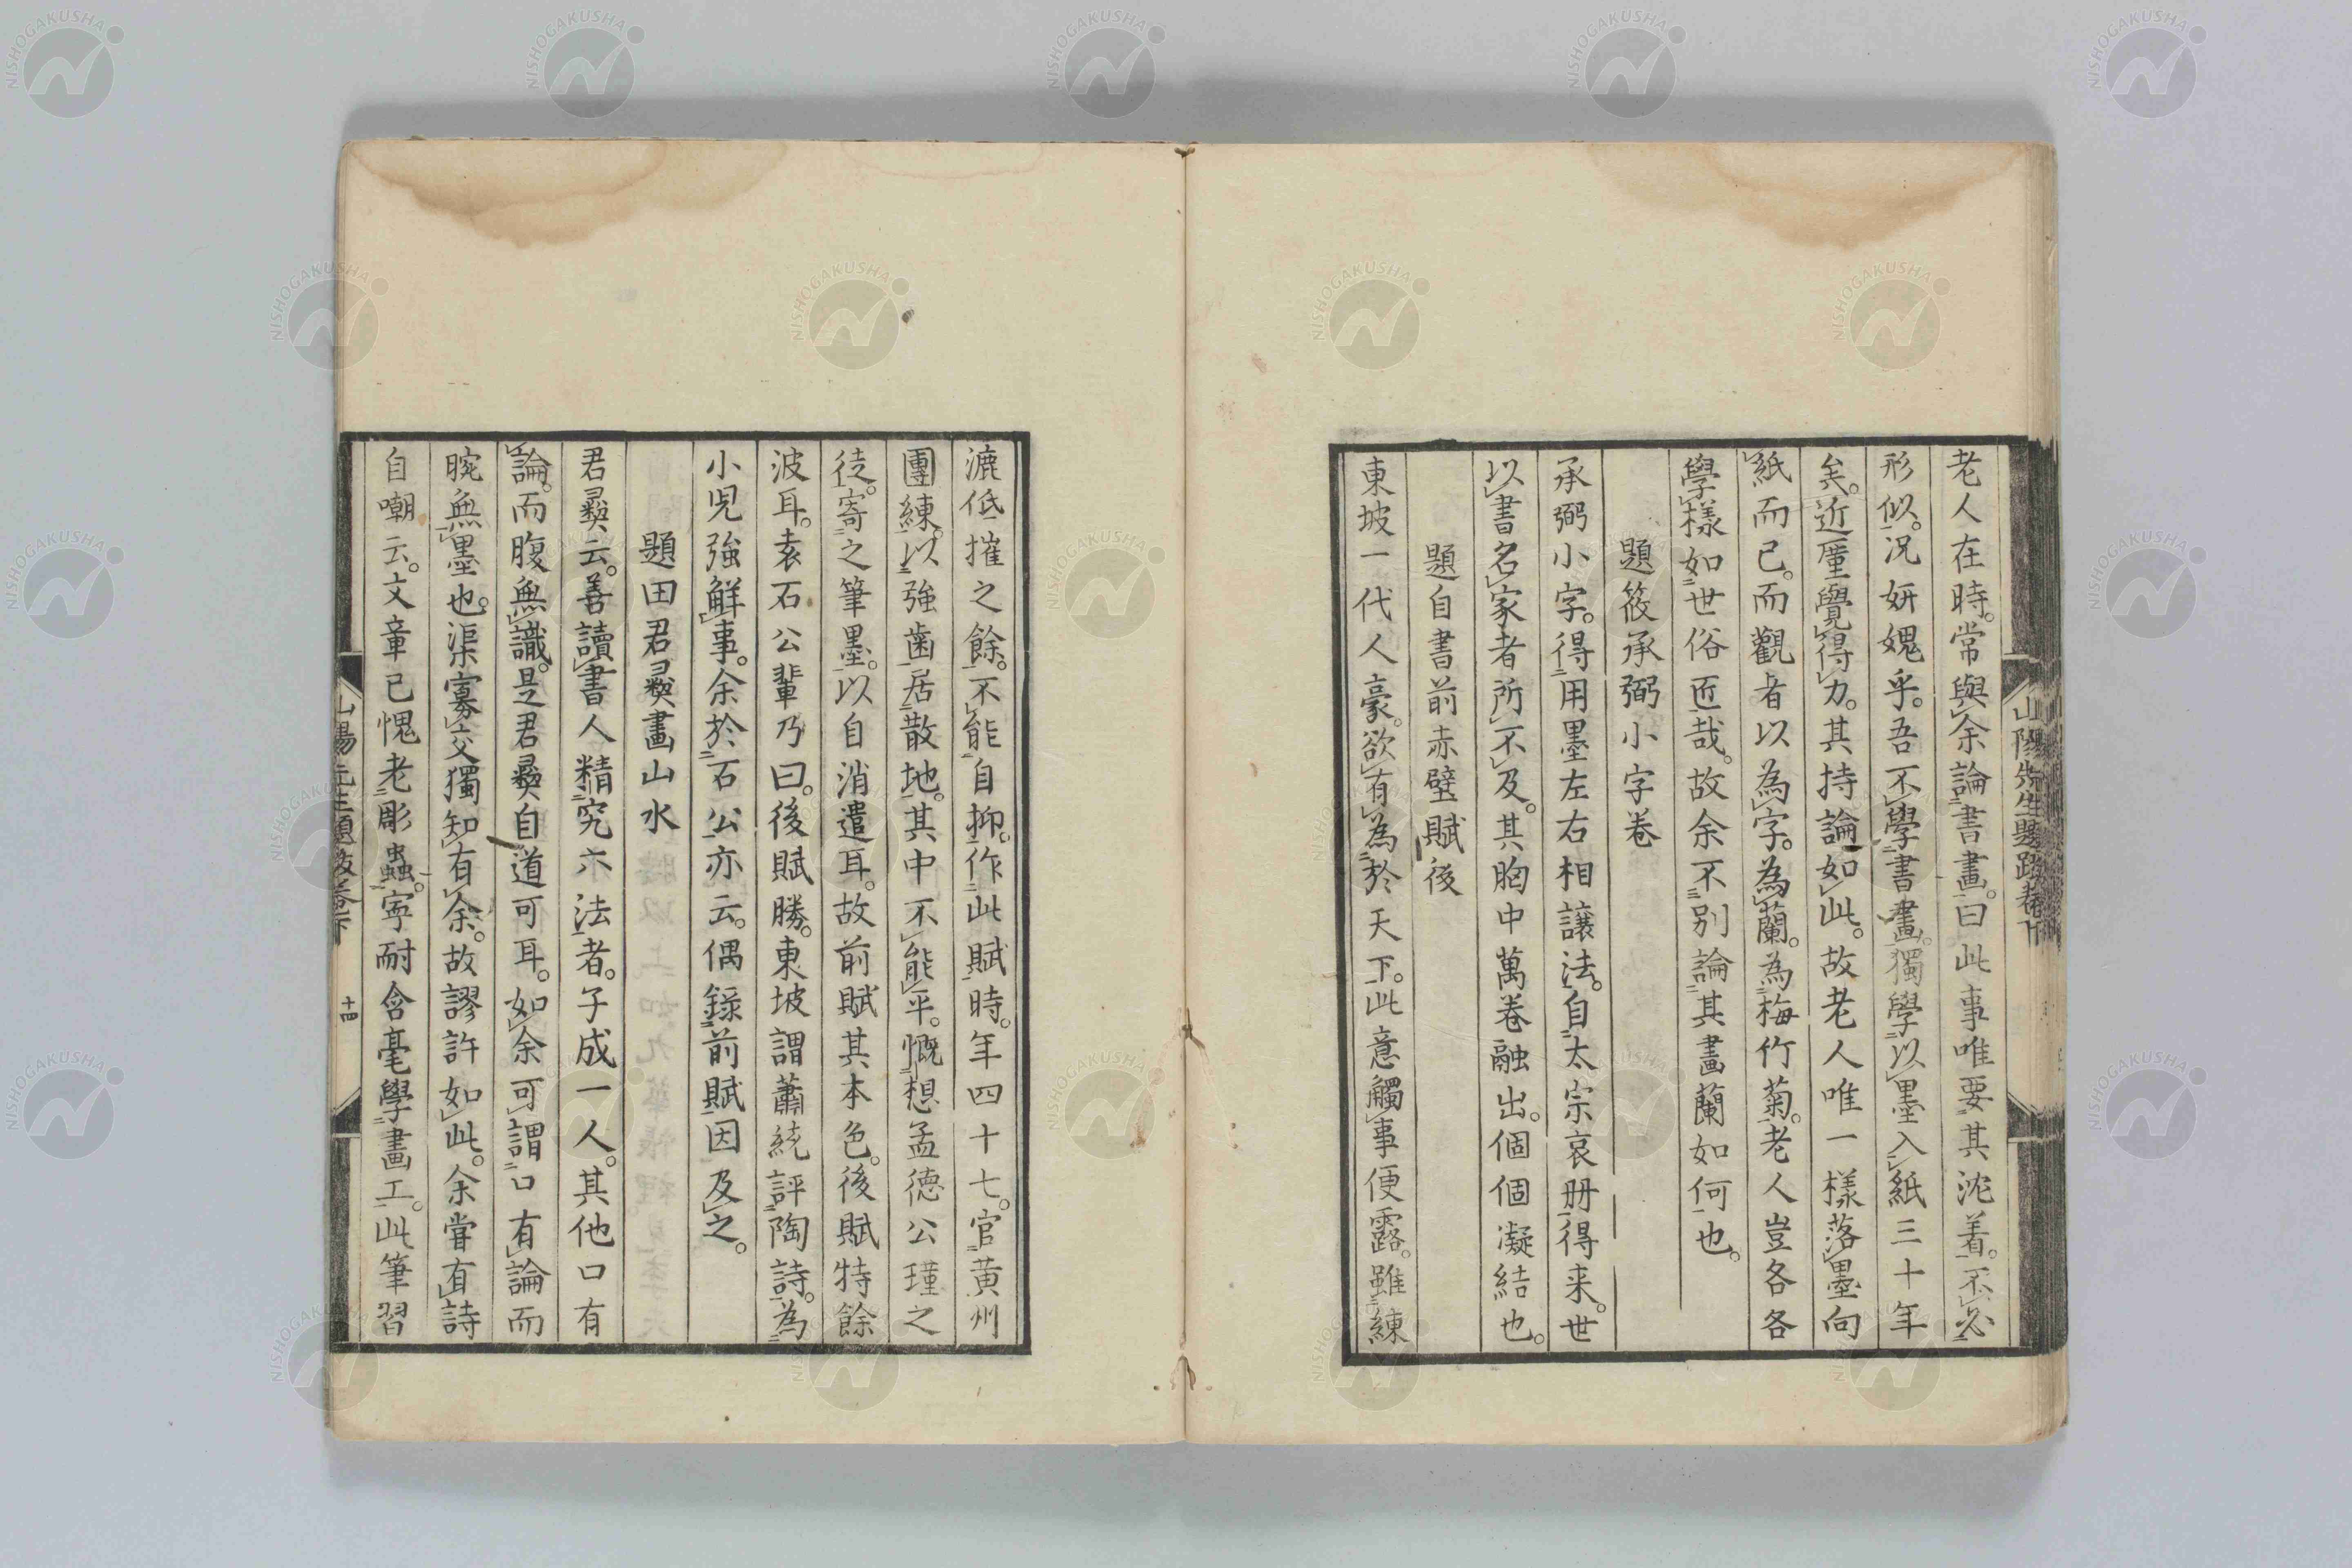 老人在時。常與余論書畫。曰此事唯要其沈着。不必
形似。況妍媸乎。吾不學書畫。獨學以墨入紙三十年
矣。近厪覺得力。其持論如此。故老人唯一樣落墨向
紙而已。而觀者以為字。為蘭。為梅竹菊。老人豈各各
學樣如世俗匠哉。故余不別論其畫蘭如何也。
題筱承弼小字卷
承弼小字。得用墨左右相讓法。自太宗哀册得来。世
以書名家者所不及。其胸中萬卷融出。個個凝結也。
題自書前赤壁賦後
東坡一代人豪。欲有為於天下。此意觸事便露。雖練
山陽先生題跋卷下
漉低摧之餘。不能自抑。作此賦時。年四十七。官黄州
團練。以強齒居散地。其中不能平。慨想孟德公瑾之
徒。寄之筆墨。以自消遣耳。故前賦其本色。後賦特餘
波耳。袁石公輩乃曰。後賦勝。東坡謂蕭統評陶詩。為
小兒強解事。余於石公亦云。偶錄前賦因及之。
題田君彝畫山水
君彝云。善讀書人精究六法者。子成一人。其他口有
論。而腹無識。是君彝自道可耳。如余可謂口有論而
腕無墨也。渠寡交獨知有余。故謬許如此。余嘗有詩
自嘲云。文章已愧老彫蟲。寧耐含毫學畫工。此筆習
山陽先生題跋卷下
十四